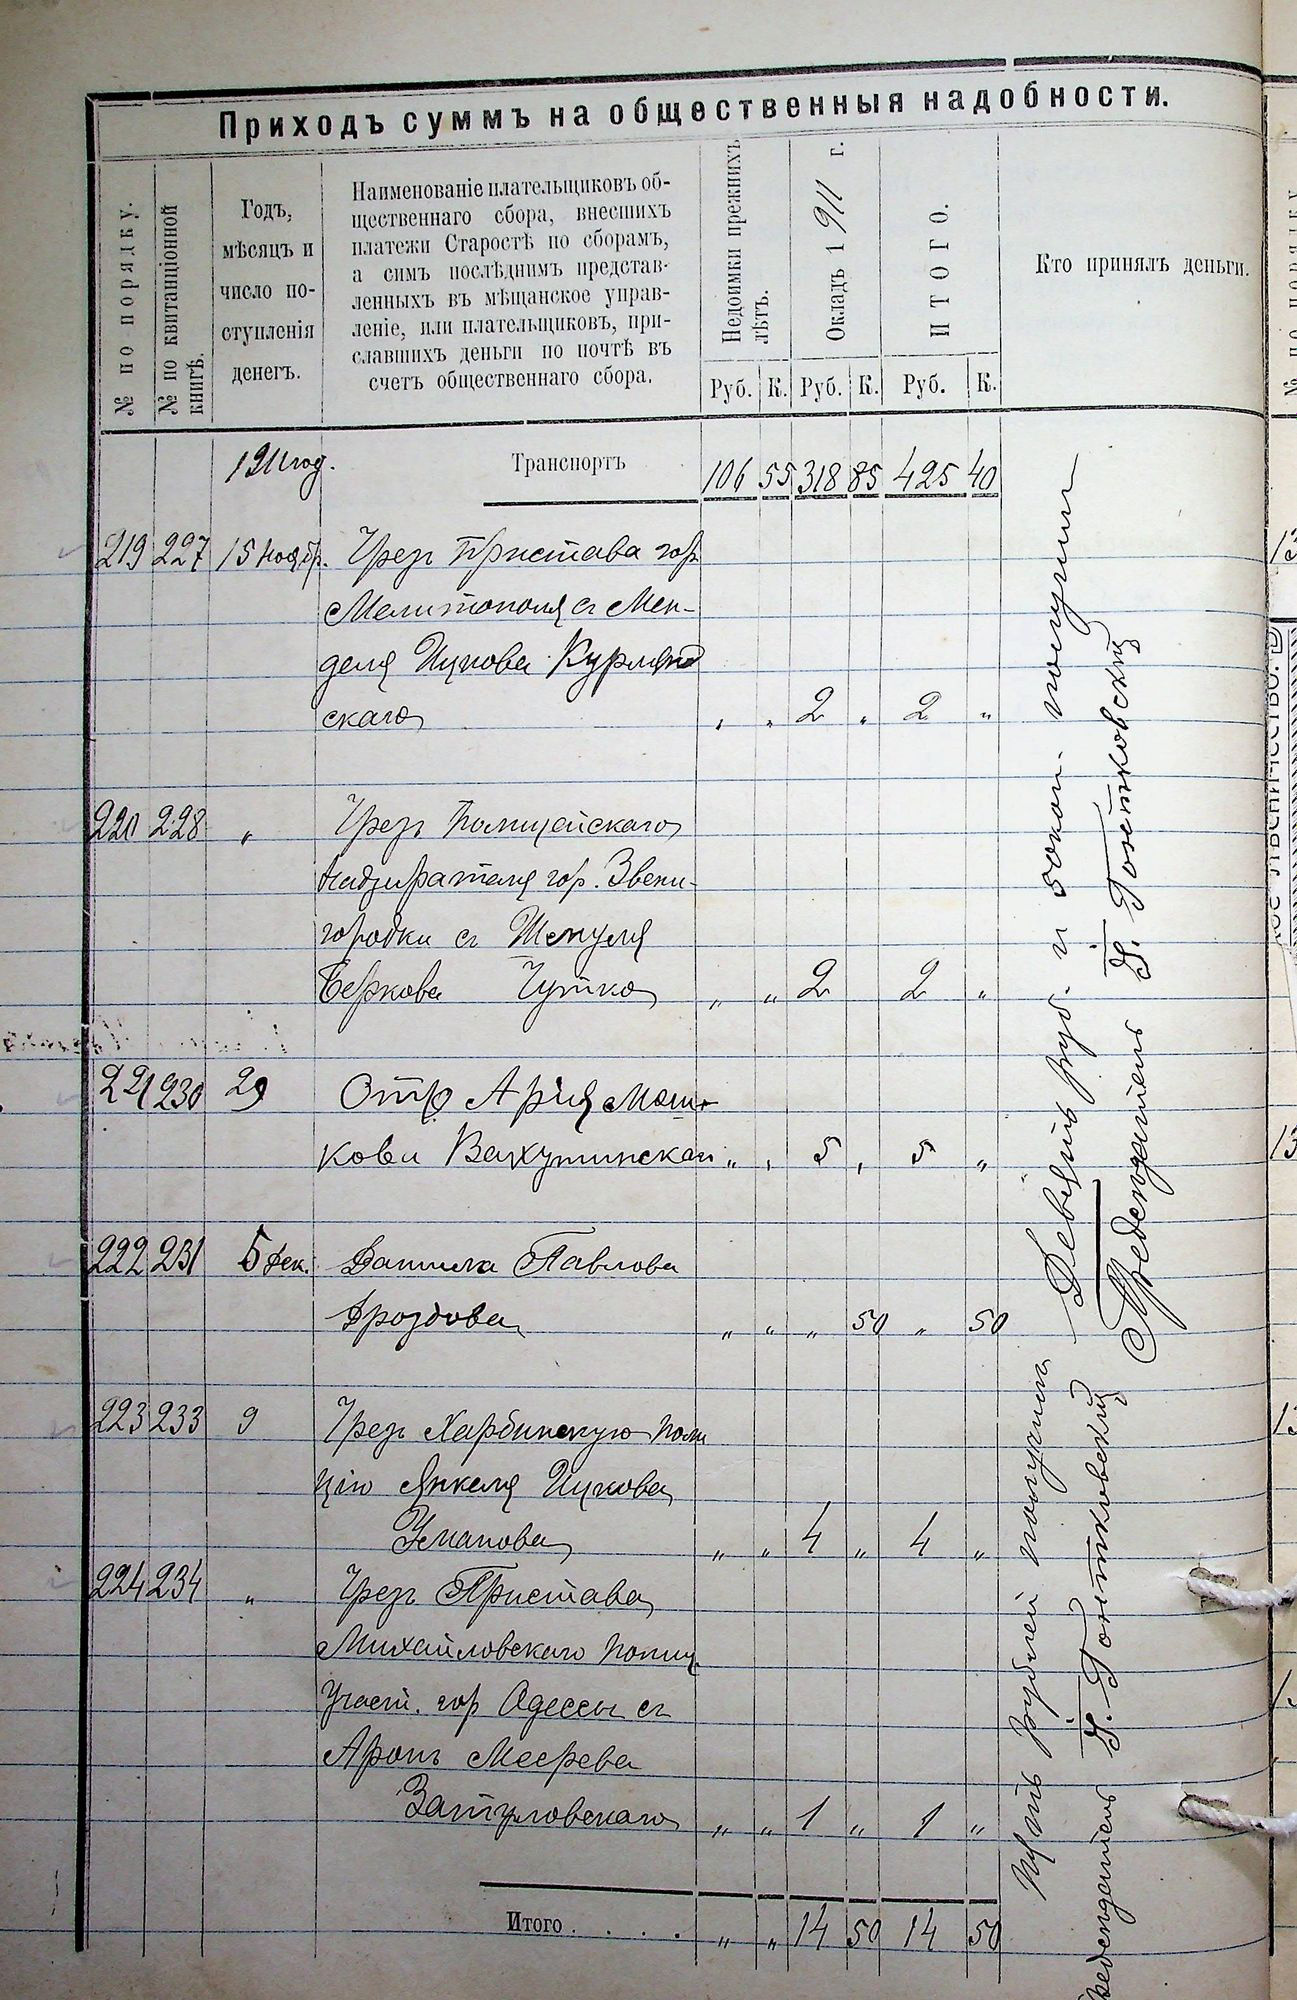 Приходъ суммъ на общественныя надобности.
№ по порядку.
№ по квитанціонной
книгѣ.
Годъ,
мѣсяцъ и
число по-
ступленія
денегъ.
Наименованіе плательщиковъ об-
щественнаго сбора, внесшихъ
платежи Старостѣ по сборамъ,
а симъ послѣднимъ представ-
ленныхъ въ мѣщанское управ-
леніе, или плательщиковъ, при-
славшихъ деньги по почтѣ въ
счетъ общественнаго сбора.
Недоимки прежнихъ
лѣтъ.
Окладъ 1911 г.
ИТОГО.
Кто принялъ деньги.
Руб. К. Руб. К. Руб. К.
1911 год. Транспортъ 106 55 318 85 425 40
219 227 15 Ноябр. Чрезъ Пристава гор.
Мелитополя съ Мен-
деля Ицкова Курлянд
скаго „ „ 2 „ 2 „
220 228 „ Чрезъ Полицейскаго
Надзирателя гор. Звени-
городки съ Шмуля
Беркова Чутко „ „ 2 2 „
221 230 29 Отъ Арія Мош-
кова Вахутинскаго „ „ 5 „ 5 „
222 231 5 Дек. Данила Павлова
Дроздова „ „ „ 50 „ 50
223 233 9 Чрезъ Харбинскую Поли
цію Янкеля Ицкова
Уманова „ „ 4 „ 4 „
224 234 „ Чрезъ Пристава
Михайловскаго Полиц.
Участ. гор Одессы съ
Аронъ Меерова
Затуловскаго „ „ 1 „ 1 „
Итого . . . . „ „ 14 50 14 50
Девять руб. и 50 коп. получилъ
Предсѣдатель Гонтковскій
Пять рублей получилъ
Предсѣдатель Гонтковскій